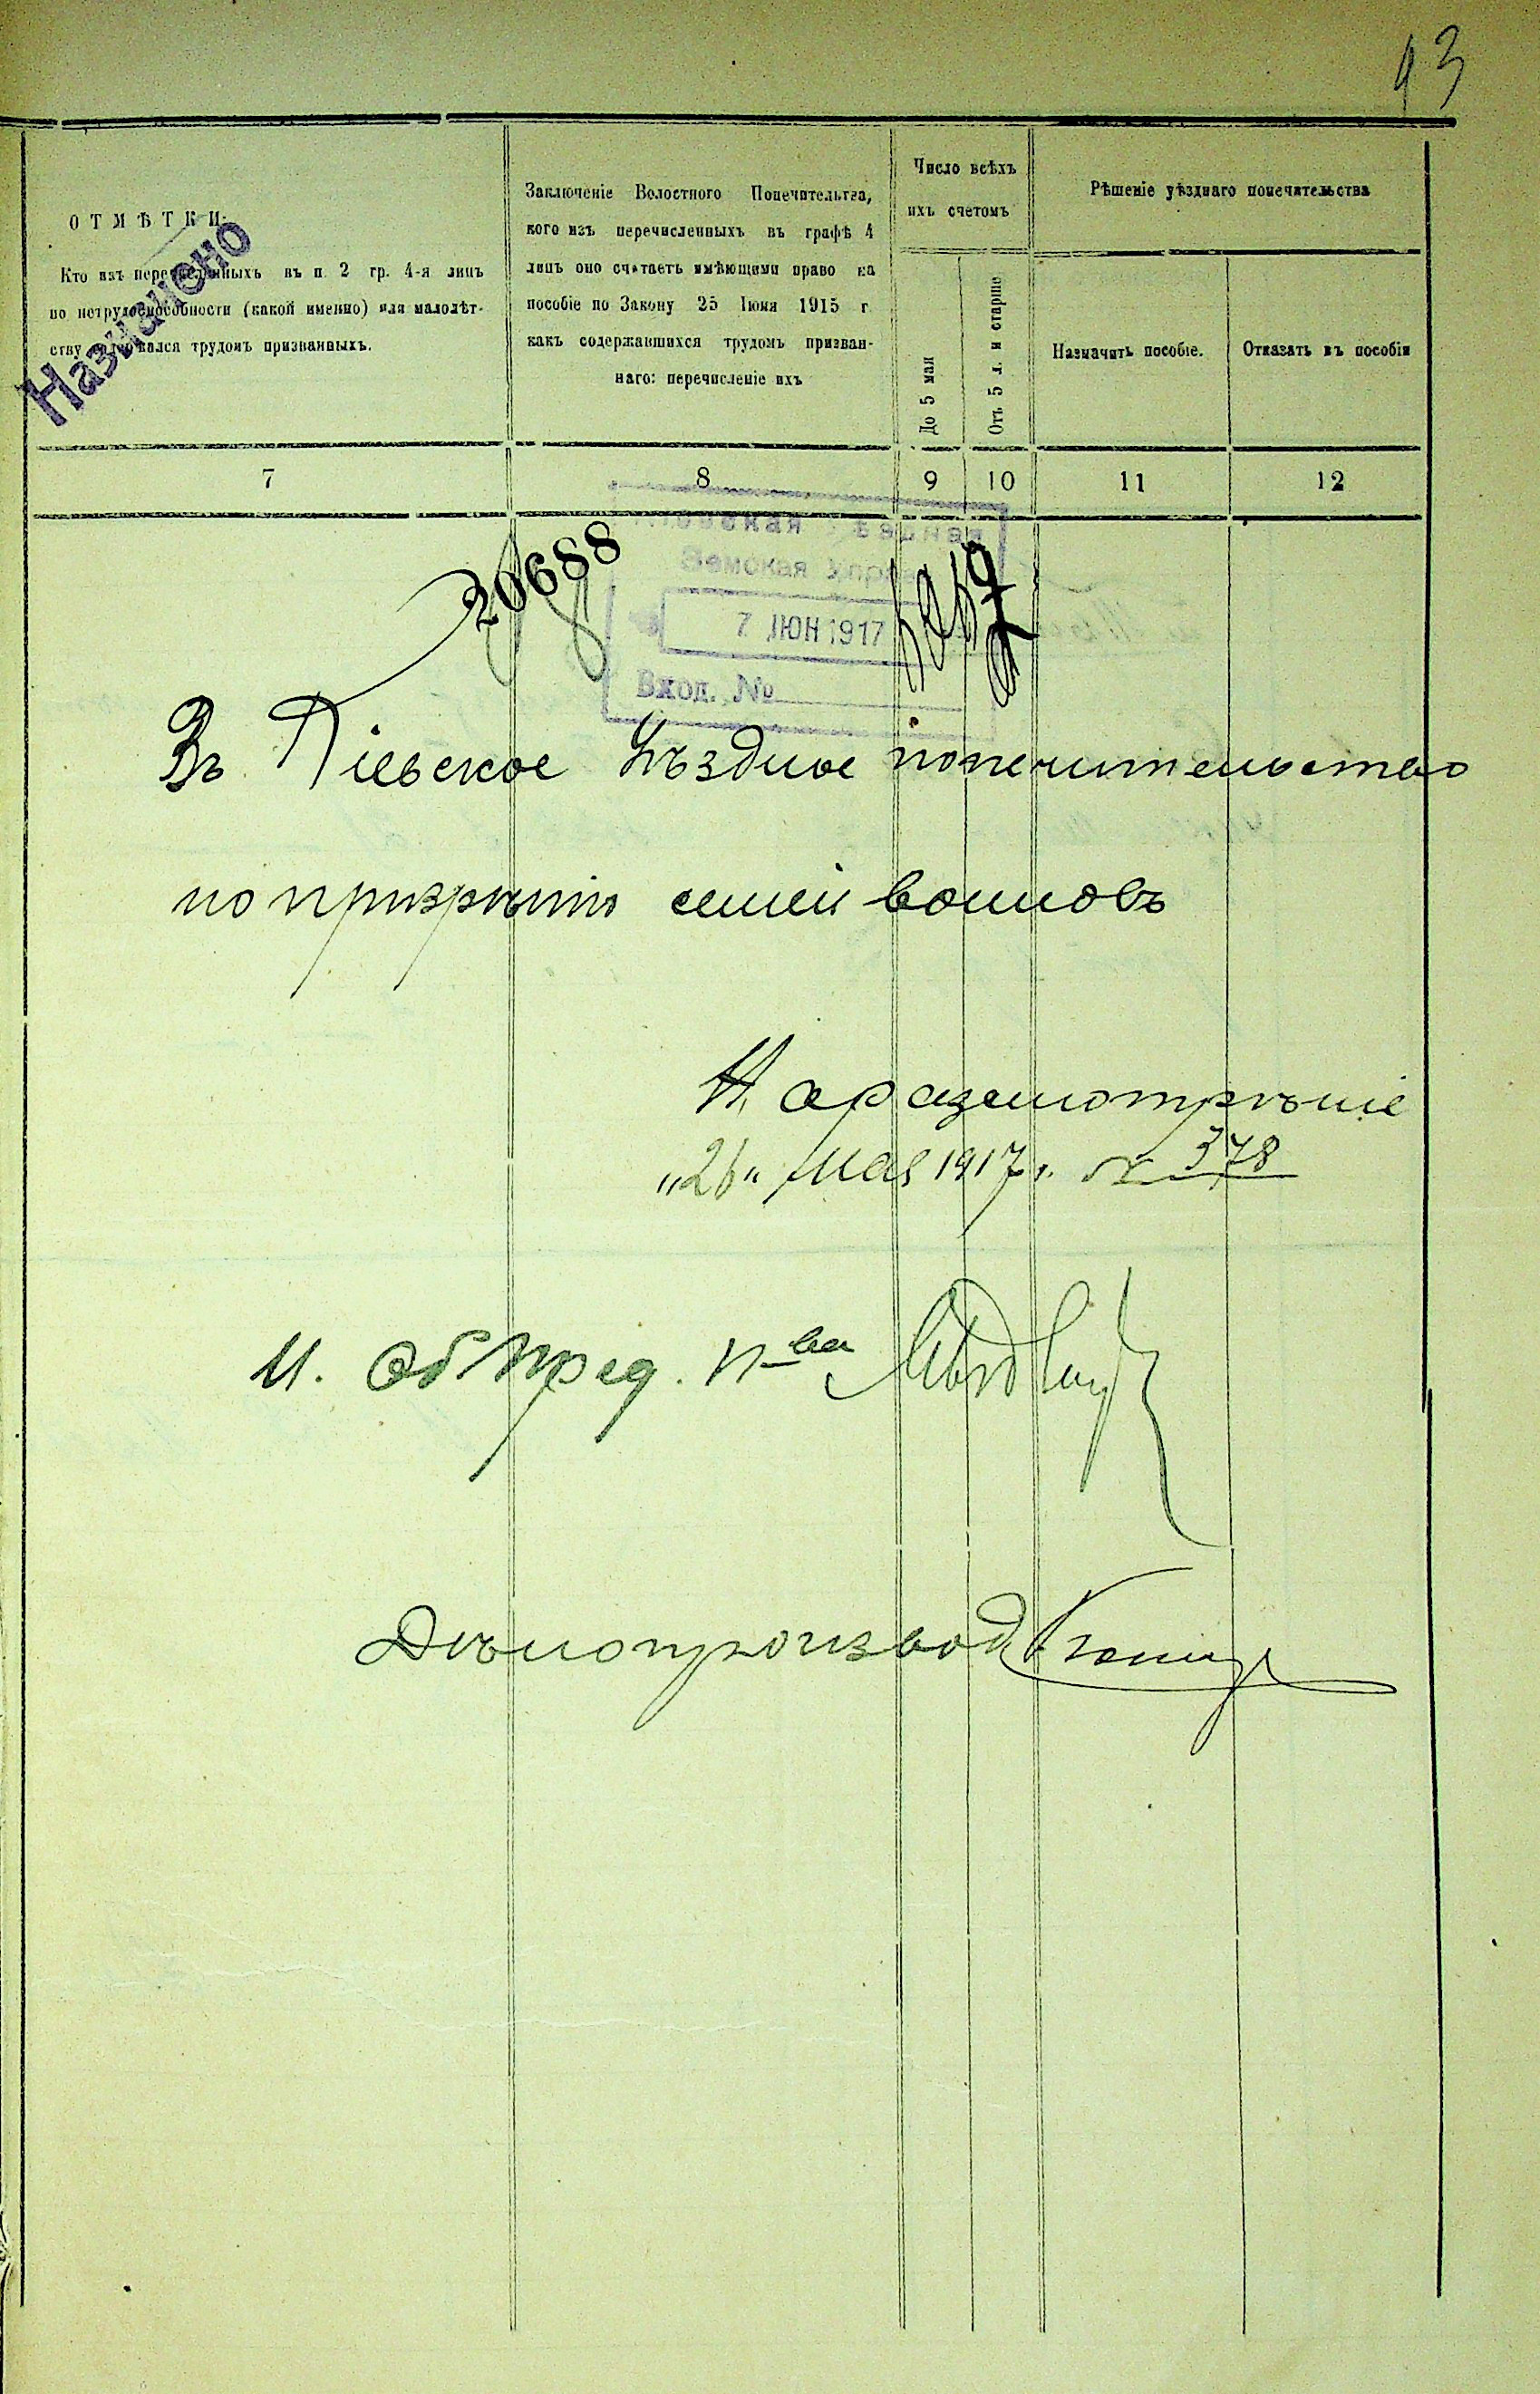 93
ОТМѢТКИ:
Кто изъ перечисленныхъ въ п. 2 гр. 4-я лицъ
по нетрудоспособности (какой именно) или малолѣт-
ству содержался трудомъ призванныхъ.
Назначено
Заключеніе Волостного Попечительства,
кого изъ перечисленныхъ въ графѣ 4
лицъ оно считаетъ имѣющими право на
пособіе по Закону 25 Іюня 1915 г
какъ содержавшихся трудомъ призван-
наго: перечисленіе ихъ
Число всѣхъ
ихъ счетомъ
До 5 мая
Отъ 5 л. и старше
Рѣшеніе уѣзднаго попечительства
Назначить пособіе.
Отказать въ пособіи
7 8 9 10 11 12
20688
Земская Упр
7 ИЮН 1917
Вход. №
Въ Кіевское Уѣздное попечительство
по призрѣнію семей воиновъ
На разсмотрѣніе
"26" мая 1917 г. № 378
И. об Пред. П-ва
Дѣлопроизвод